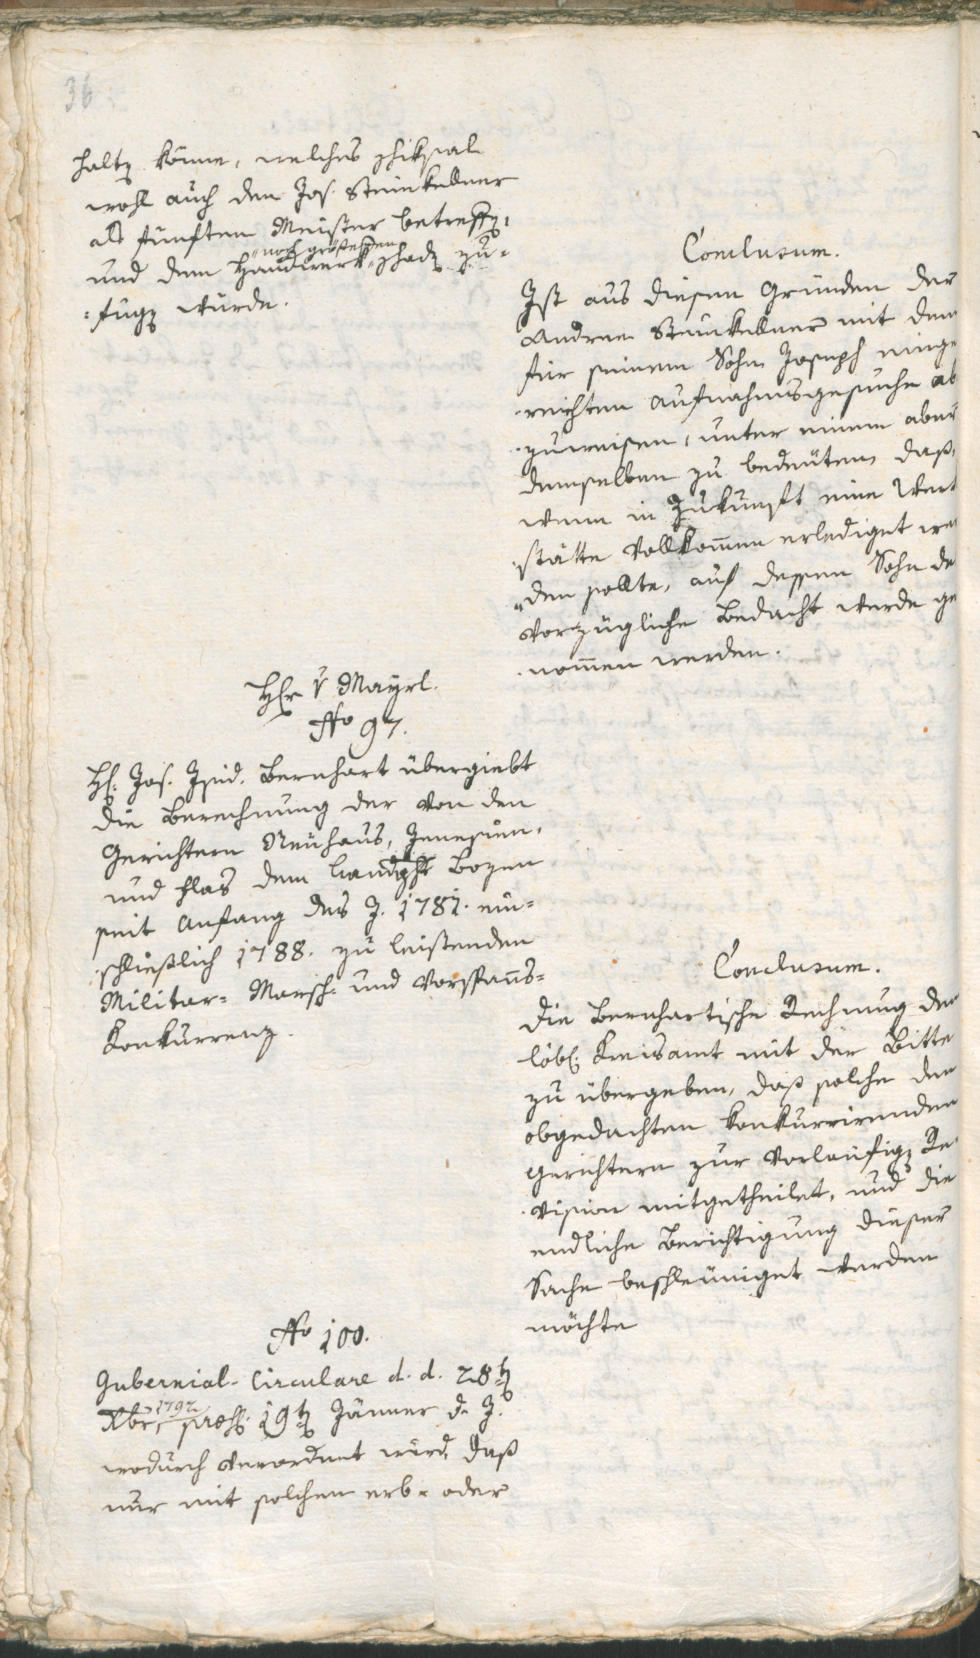 36
haltȝ könne, welches schiksal
wohl auch den Jos. Steinkellner
als fünften Meister betreffȝ,
noch größeren
und dem Handwerk schadȝ zu-
fugȝ würde.
Conclusum.
Ist aus diesen Gründen der
Andree Steinkellner mit dem
für seinem Sohn Joseph einge
reichten Aufnahmsgesuche ab
zuweisen, unter einem aber
demselben zu bedeuten, daß,
wenn in Zukunft eine Werk
stätte vollkom̄en erlediget wer
den sollte, auf dessen Sohn de
vorzügliche Bedacht werde ge
nom̄en werden.
Hℓr v Mayrl.
Nro 97.
Hℓ. Jos. Isid. Bernhart übergiebt
die Berechnung der von den
Gerichtern Neuhaus, Jenesien,
und Flas dem Landght Bozen
seit Anfang des J. 1781. ein-
schließlich 1788. zu leistenden
Militar- Marsch- und Vorspan̄s-
Konkurrenz.
Conclusum.
Die Bernhartische Rechnung dem
löbℓ. Kreisamt mit der Bitte
zu übergeben, daß solche den
obgedachten konkurrirenden
Gerichtern zur vorläufigȝ Re
vision mitgetheilet, und die
endliche Berichtigung dieser
Sache beschleuniget werden
möchte
Nro 100.
Gubernial-Circulare d. d. 28tȝ
1792
Xbr, præs. 19tȝ Jänner d. J.
wodurch verordnet wird, daß
nur mit solchen erb- oder